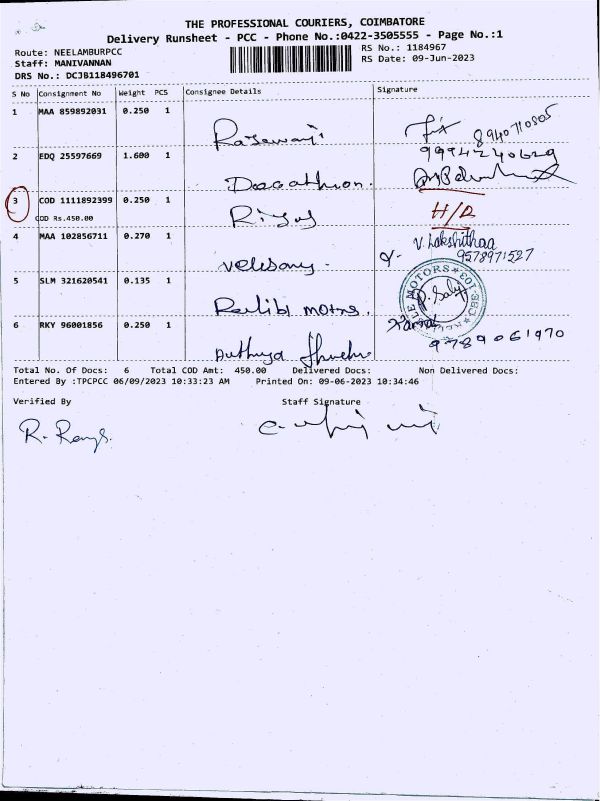 THE PROFESSIONAL COURIERS, COIMBATORE
Delivery Runsheet - PCC - Phone No.:0422-3505555 - Page No.:1
Route: NEELAMBURPCC
RS No.: 1184967
Staff: MANIVANNAN
RS Date: 09-Jun-2023
DRS No.: DCJB118496701
S No Consignment No Weight PCS Consignee Details Signature
1 MAA 859892031 0.250 1
8940710505
2 EDQ 25597669 1.600 1
9994240629
3 COD 1111892399 0.250 1 H/R
COD Rs.450.00
4 MAA 102856711 0.270 1 V. Lakshithaa
9578971527
5 SLM 321620541 0.135 1
MOTORS
6 RKY 96001856 0.250 1
9789061970
Total No. Of Docs: 6 Total COD Amt: 450.00 Delivered Docs: Non Delivered Docs:
Entered By :TPCPCC 06/09/2023 10:33:23 AM Printed On: 09-06-2023 10:34:46
Verified By Staff Signature